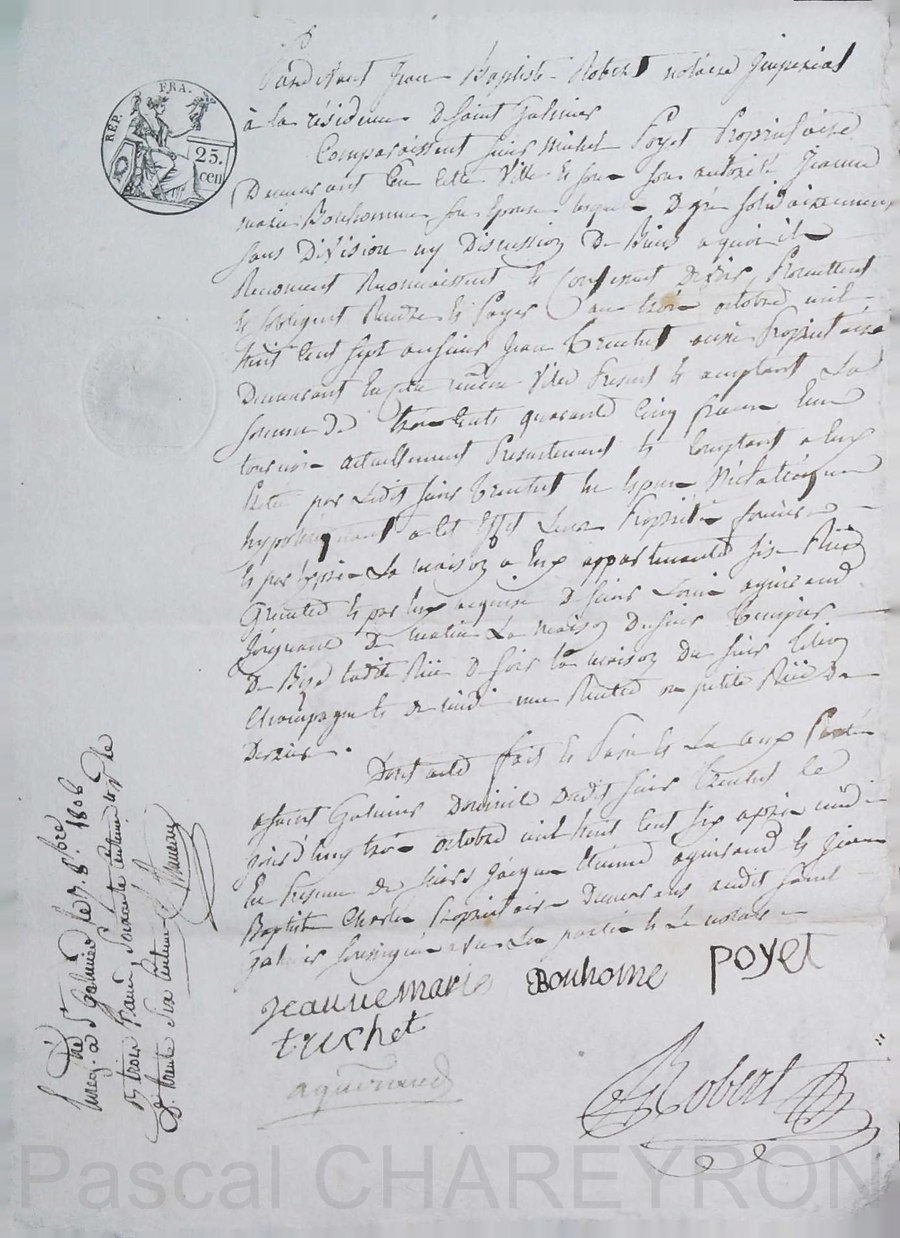 RÉP. FRA.
25.
cen
Pardevant Jean Baptiste Robert notaire Imperial
à la résidence de Saint Galmier
Comparaissent Sieur Michel Poyet Proprietaire
Demeurant en cette Ville et sous son autorité Jeanne
marie Bonhomme son Epouse lesquels De gré solidairement
sans Division ny Discussion De Biens a quoi ils
Renoncent Reconnaissent et Confessent Devoir Promettent
et sobligent Rendre et Payer au trois octobre mil
huit Cent Sept au Sieur Jean truchet aussi Proprietaire
Demeurant en cette même Ville Present et acceptant La
somme De trois Cents quarante Cinq francs
tournois actuellement Presentement et Comptant a Eux
Prêté par Ledit Sieur truchet en Especes Métalliques
hypothéquant a cet Effet Leurs Propriétés foncieres
et par Exprès La maison a Eux appartenante sise Rue
et par Eux acquise de Sieur Louis aguiraud
Joignant De matin La maison Du Sieur
De Bize ladite Rue De soir la maison du Sieur
et De midi une Petite Rue De
Dont acte fait et Passé et Lu aux Parties
a Saint Galmier Domicile Dudit Sieur truchet le
jourd'huy trois octobre mil huit Cent Six après midi
En Presence de Sieurs Jacques Etienne aguiraud et Jean
Baptiste Charles Proprietaires Demeurans audit Saint
Galmier soussignés avec Les parties et Le notaire
jeanne marie Bonhome poyet
truchet
aguiraud
Robert
Enreg. à St Galmier le 7. 8.bre 1806
trois francs soixante centimes
trente six centimes
Pascal CHAREYRON